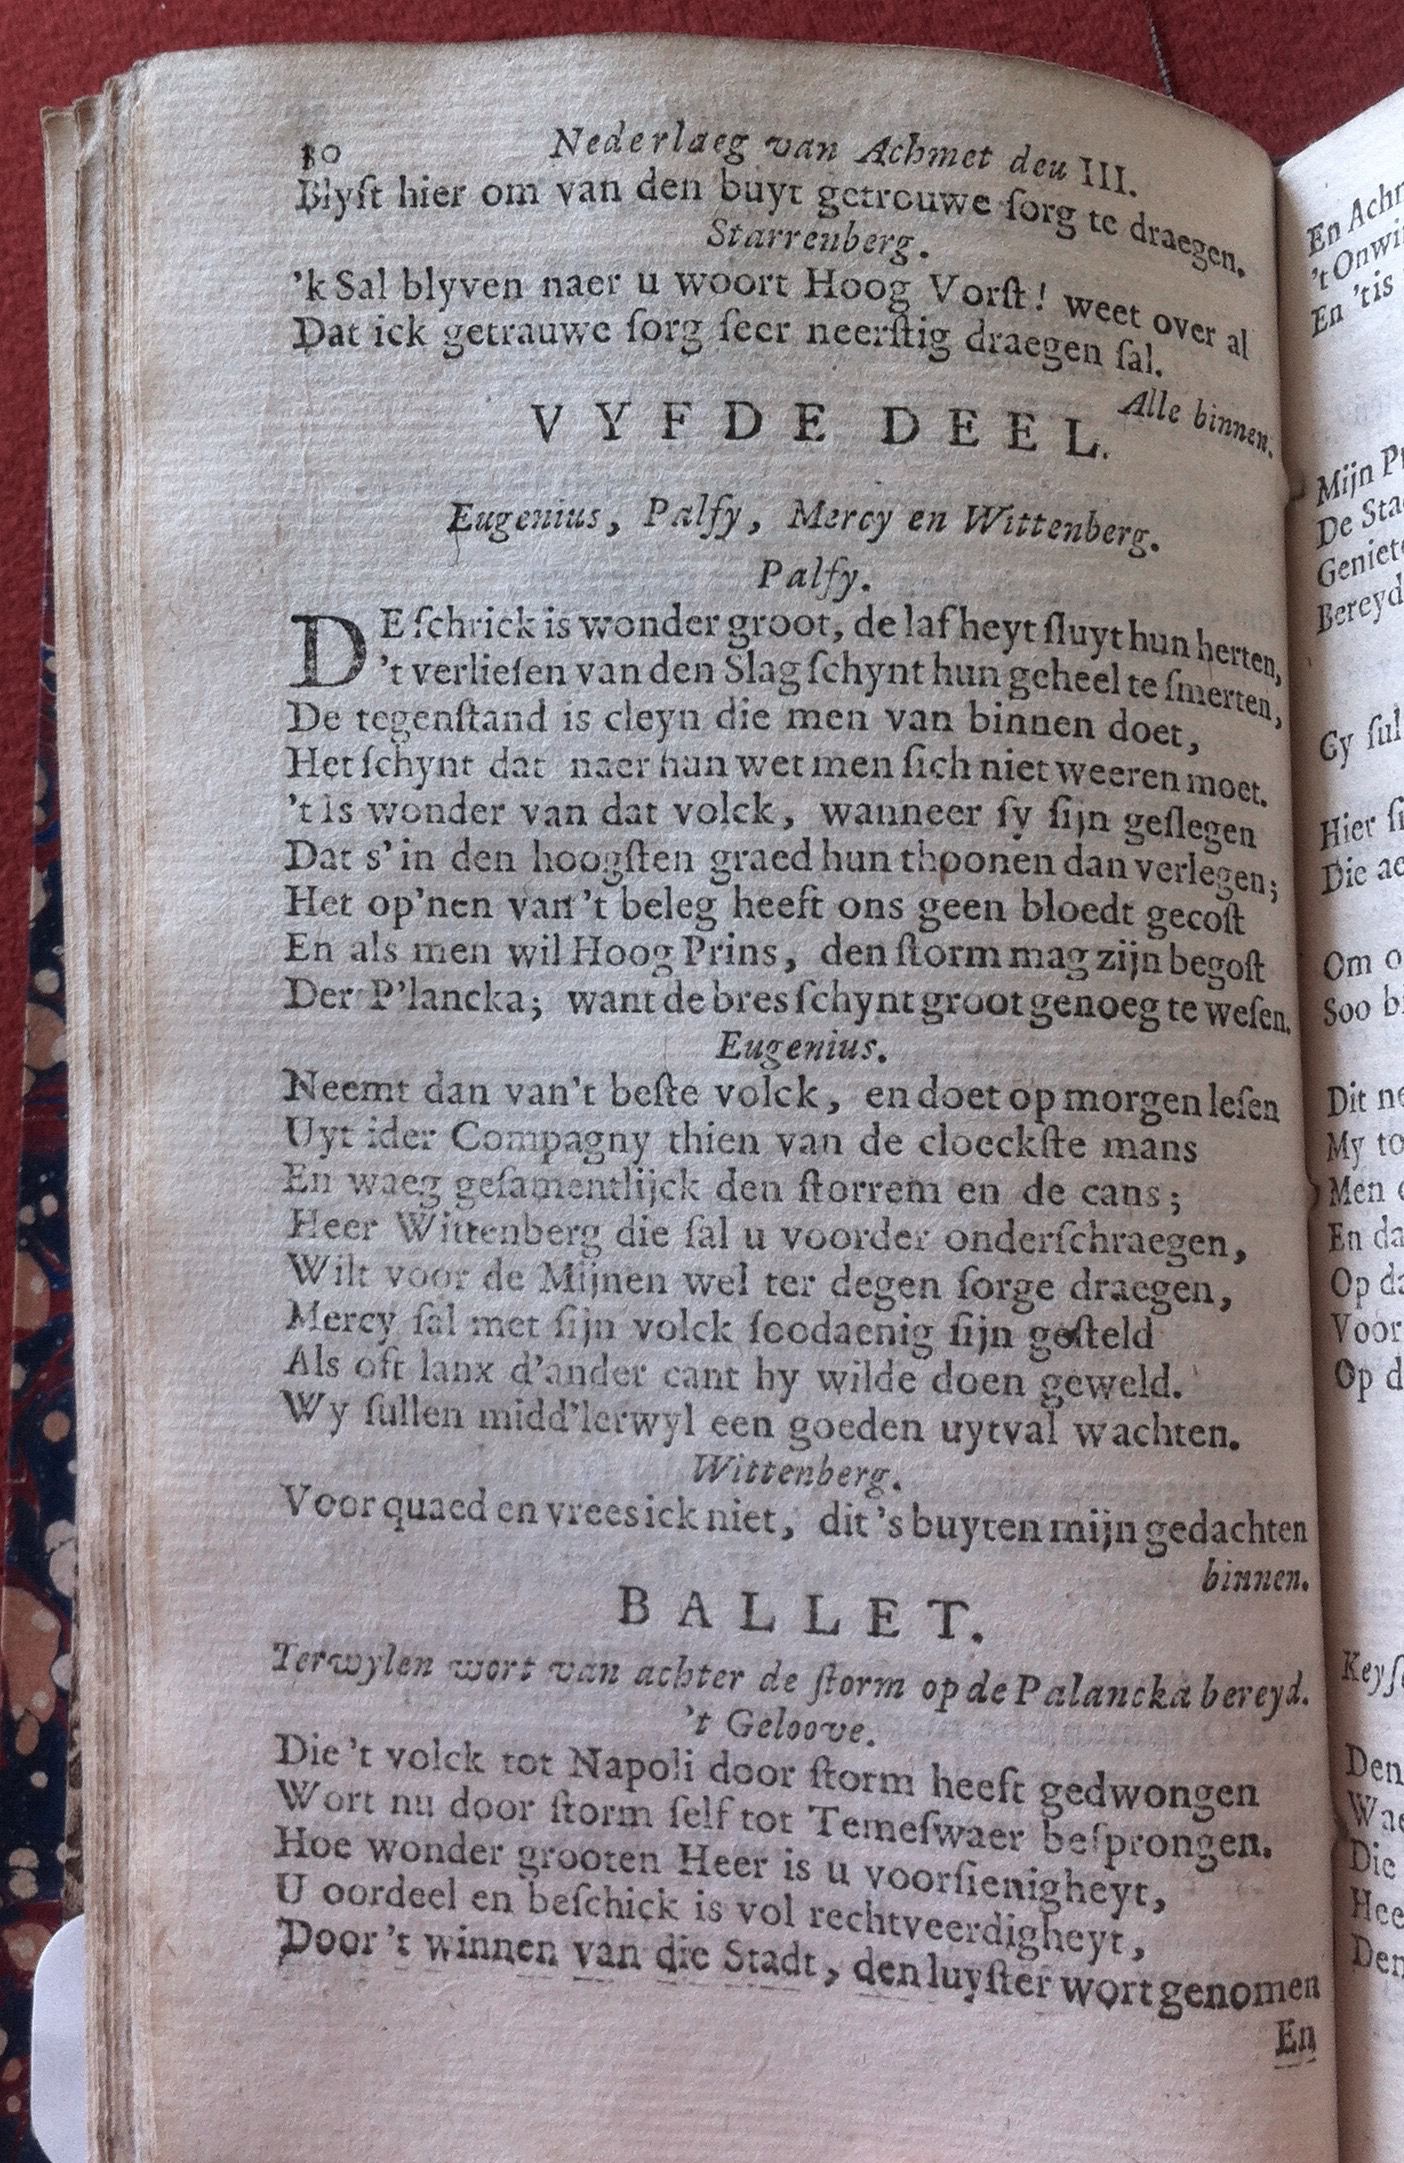 80 Nederlaeg van Achmet deu III.
Blyſt hier om van den buyt getrouwe ſorg te draegen.
Starrenberg.
'k Sal blyven naer u woort Hoog Vorſt! weet over al
Dat ick getrauwe ſorg ſeer neerſtig draegen ſal.
Alle binnen.
VYFDE DEEL.
Eugenius, Palfy, Mercy en Wittenberg.
Palfy.
DE ſchrick is wonder groot, de lafheyt ſluyt hun herten,
't verlieſen van den Slag ſchynt hun geheel te ſmerten,
De tegenſtand is cleyn die men van binnen doet,
Het ſchynt dat naer hun wet men ſich niet weeren moet.
't Is wonder van dat volck, wanneer ſy ſijn geſlegen
Dat s' in den hoogſten graed hun thoonen dan verlegen;
Het op'nen van 't beleg heeft ons geen bloedt gecoſt
En als men wil Hoog Prins, den ſtorm mag zijn begoſt
Der P'lancka; want de bres ſchynt groot genoeg te weſen.
Eugenius.
Neemt dan van't beſte volck, en doet op morgen leſen
Uyt ider Compagny thien van de cloeckſte mans
En waeg geſamentlijck den ſtorrem en de cans;
Heer Wittenberg die ſal u voorder onderſchraegen,
Wilt voor de Mijnen wel ter degen ſorge draegen,
Mercy ſal met ſijn volck ſoodaenig ſijn geſteld
Als oft lanx d'ander cant hy wilde doen geweld.
Wy ſullen midd'lerwyl een goeden uytval wachten.
Wittenberg.
Voor quaed en vrees ick niet, dit 's buyten mijn gedachten
binnen.
BALLET.
Terwylen wort van achter de ſtorm op de Palancka bereyd.
't Geloove.
Die 't volck tot Napoli door ſtorm heeft gedwongen
Wort nu door ſtorm ſelf tot Temeſwaer beſprongen.
Hoe wonder grooten Heer is u voorſienigheyt,
U oordeel en beſchick is vol rechtveerdigheyt,
Door 't winnen van die Stadt, den luyſter wort genomen
En
En Achm
't Onwi
En 'tis
Mijn Pr
De Sta
Geniet
Bereyd
Gy ſul
Hier ſi
Die ae
Om o
Soo bi
Dit ne
My to
Men
En da
Op da
Voor
Op d
Keyſ
Den
Wae
Die
Hee
Den